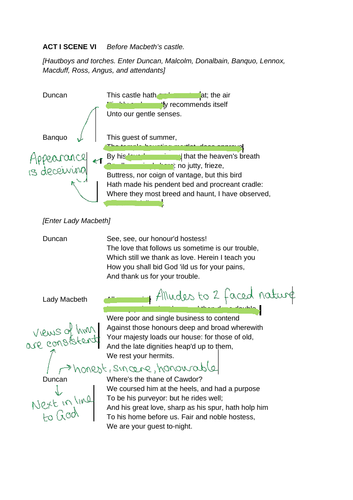 ACT I SCENE VI Before Macbeth's castle.
[Hautboys and torches. Enter Duncan, Malcolm, Donalbain, Banquo, Lennox,
Macduff, Ross, Angus, and attendants]
Duncan This castle hath at; the air
recommends itself
Unto our gentle senses.
Banquo This guest of summer,
By his that the heaven's breath
Appearance
is deceiving
no jutty, frieze,
Buttress, nor coign of vantage, but this bird
Hath made his pendent bed and procreant cradle:
Where they most breed and haunt, I have observed,
[Enter Lady Macbeth]
Duncan See, see, our honour'd hostess!
The love that follows us sometime is our trouble,
Which still we thank as love. Herein I teach you
How you shall bid God 'ild us for your pains,
And thank us for your trouble.
Lady Macbeth
Alludes to 2 faced nature
Were poor and single business to contend
Against those honours deep and broad wherewith
Your majesty loads our house: for those of old,
And the late dignities heap'd up to them,
We rest your hermits.
views of him
are consistent
honest, sincere, honourable
Duncan Where's the thane of Cawdor?
We coursed him at the heels, and had a purpose
To be his purveyor: but he rides well;
And his great love, sharp as his spur, hath holp him
To his home before us. Fair and noble hostess,
We are your guest to-night.
Next in line
to God